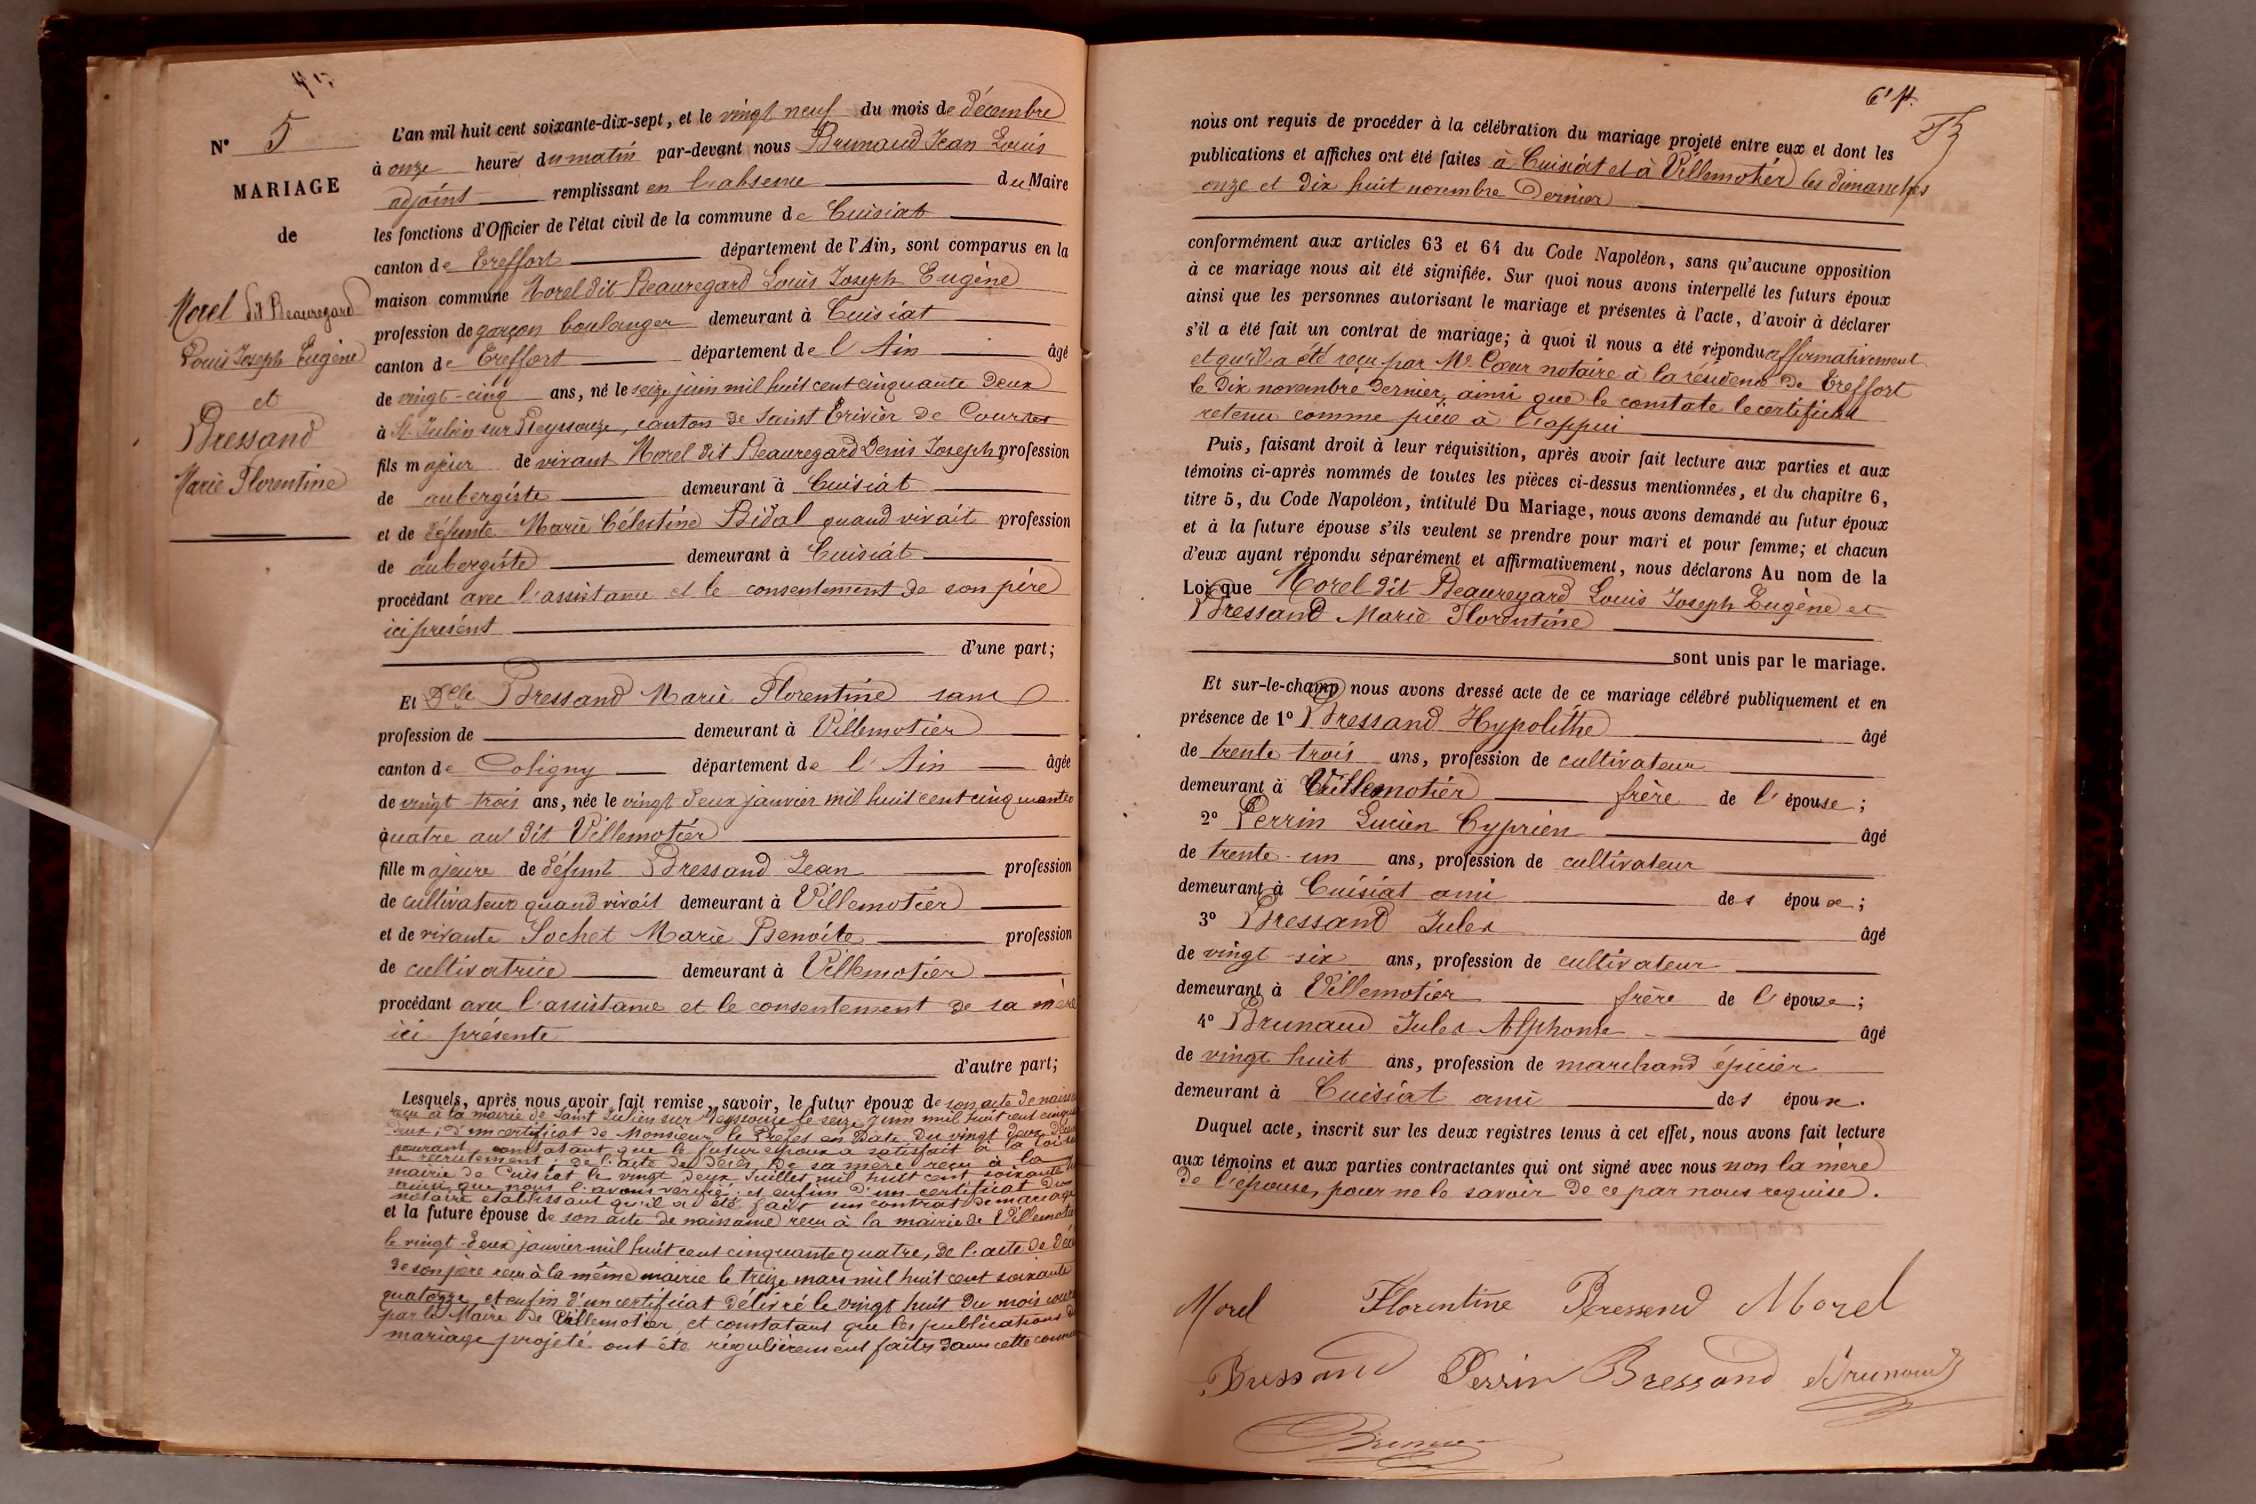 N° 5
MARIAGE
de
Morel dit Beauregard
Louis Joseph Eugène
et
Bressand
Marie Florentine
L'an mil huit cent soixante-dix-sept, et le vingt neuf du mois de décembre
à onze heures du matin par-devant nous Brunaud Jean Louis
adjoint remplissant en l'absence du Maire
les fonctions d'Officier de l'état civil de la commune de Cuisiat
canton de Treffort département de l'Ain, sont comparus en la
maison commune Morel dit Beauregard Louis Joseph Eugène
profession de garçon boulanger demeurant à Cuisiat
canton de Treffort département de l'Ain âgé
de vingt-cinq ans, né le seize juin mil huit cent cinquante deux
à St Julien sur Reyssouze, canton de Saint Trivier de Courtes
fils majeur de vivant Morel dit Beauregard Denis Joseph, profession
de aubergiste demeurant à Cuisiat
et de défunte Marie Célestine Bidal quand vivait profession
de aubergiste demeurant à Cuisiat
procédant avec l'assistance et le consentement de son père
ici présent
d'une part;
Et Dlle Bressand Marie Florentine sans
profession de demeurant à Villemotier
canton de Coligny département de l'Ain âgée
de vingt-trois ans, née le vingt deux janvier mil huit cent cinquante
quatre au dit Villemotier
fille majeure de défunt Bressand Jean profession
de cultivateur quand vivait demeurant à Villemotier
et de vivante Sochet Marie Benoite profession
de cultivatrice demeurant à Villemotier
procédant avec l'assistance et le consentement de sa mère
ici présente
d'autre part;
Lesquels, après nous avoir fait remise, savoir, le futur époux de son acte de
reçu à la mairie de Saint Julien sur Reyssouze le seize juin mil huit cent
deux; d'un certificat de Monsieur le Préfet en date du vingt deux
courant, constatant que le futur époux a satisfait à la loi
le recrutement; de l'acte de décès de sa mère reçu à la
mairie de Cuisiat le vingt deux juillet mil huit cent soixante
ainsi que nous l'avons vérifié; et enfin d'un certificat
notaire établissant qu'il a été fait un contrat de mariage
et la future épouse de son acte de naissance reçu à la mairie de Villemotier
le vingt-deux janvier mil huit cent cinquante quatre, de l'acte de
de son père reçu à la même mairie le treize mars mil huit cent soixante
quatorze, et enfin d'un certificat délivré le vingt huit du mois
par le Maire de Villemotier et constatant que les publications
mariage projeté ont été régulièrement faites dans cette
nous ont requis de procéder à la célébration du mariage projeté entre eux et dont les
publications et affiches ont été faites à Cuisiat et à Villemotier les dimanches
onze et dix huit novembre dernier
conformément aux articles 63 et 64 du Code Napoléon, sans qu'aucune opposition
à ce mariage nous ait été signifiée. Sur quoi nous avons interpellé les futurs époux
ainsi que les personnes autorisant le mariage et présentes à l'acte, d'avoir à déclarer
s'il a été fait un contrat de mariage; à quoi il nous a été répondu affirmativement
et qu'il a été reçu par Me Cœur notaire à la résidence de Treffort
le dix novembre dernier, ainsi que le constate le certificat
retenu comme pièce à l'appui
Puis, faisant droit à leur réquisition, après avoir fait lecture aux parties et aux
témoins ci-après nommés de toutes les pièces ci-dessus mentionnées, et du chapitre 6,
titre 5, du Code Napoléon, intitulé Du Mariage, nous avons demandé au futur époux
et à la future épouse s'ils veulent se prendre pour mari et pour femme; et chacun
d'eux ayant répondu séparément et affirmativement, nous déclarons Au nom de la
Loi que Morel dit Beauregard Louis Joseph Eugène et
Bressand Marie Florentine
sont unis par le mariage.
Et sur-le-champ nous avons dressé acte de ce mariage célébré publiquement et en
présence de 1° Bressand Hypolithe âgé
de trente trois ans, profession de cultivateur
demeurant à Villemotier frère de l'épouse;
2° Perrin Lucien Cyprien âgé
de trente-un ans, profession de cultivateur
demeurant à Cuisiat ami des époux;
3° Bressand Jules âgé
de vingt-six ans, profession de cultivateur
demeurant à Villemotier frère de l'épouse;
4° Brunaud Jules Alphonse âgé
de vingt huit ans, profession de marchand épicier
demeurant à Cuisiat ami des époux.
Duquel acte, inscrit sur les deux registres tenus à cet effet, nous avons fait lecture
aux témoins et aux parties contractantes qui ont signé avec nous non la mère
de l'épouse, pour ne le savoir de ce par nous requise.
Morel Florentine Bressend Morel
Bressand Perrin Bressand Brunaud